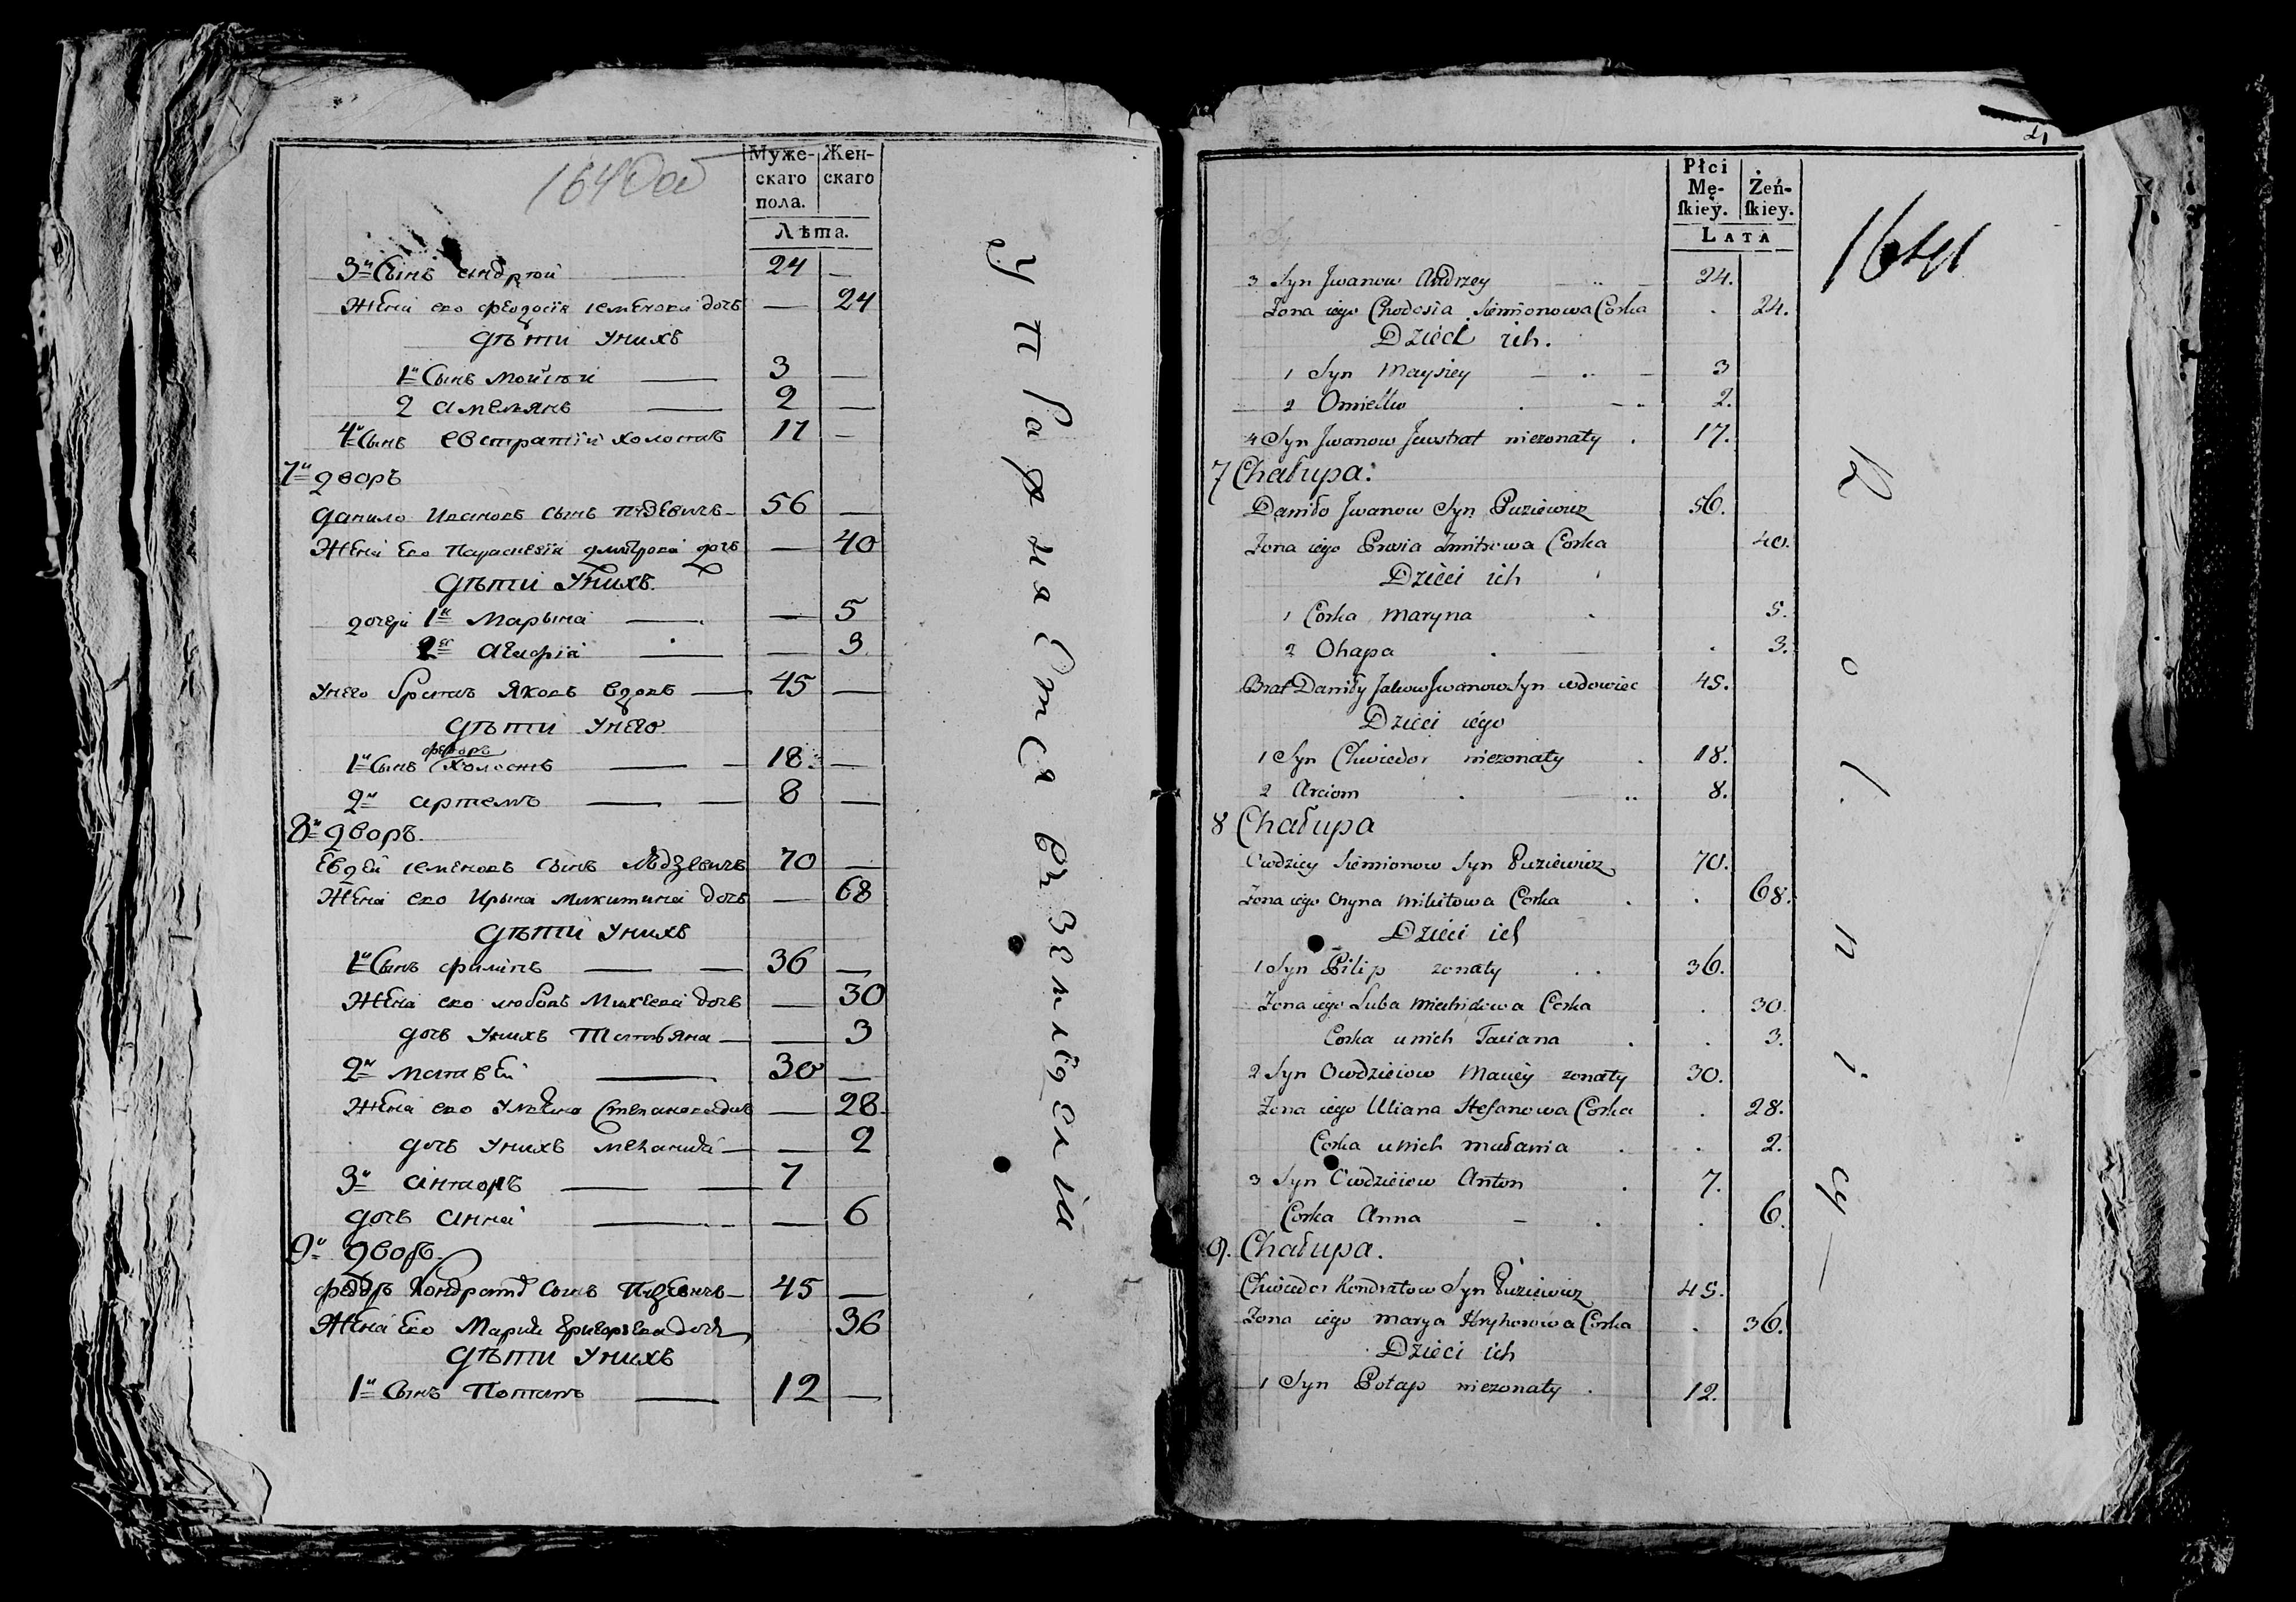 164об
Муже-
скаго
пола.
Жен-
скаго
Лѣта.
3й Сынъ андрей 24 —
Жена его феодосія семенова дочь — 24
дѣти унихъ
1й Сынъ мойсей 3 —
2 амелянъ 2 —
4й Сынъ евстратій холостъ 17 —
7й дворъ
данило Ивановъ сынъ пузевичъ 56 —
Жена его Параскевія дмитрова дочь — 40
дѣти Унихъ
дочери 1я Марына — 5
2я агафія — 3
унего братъ Яковъ вдовъ 45 —
дѣти унего
1й Сынъ федоръ холостъ 18 —
2й артемъ 8 —
8й дворъ.
Евдей семеновъ сынъ 70 —
Жена его Ирына микитина дочь — 68
дѣти Унихъ
1й Сынъ филипъ 36 —
Жена его любовь дочь — 30
дочь Унихъ Татьяна — 3
2й матвей 30 —
Жена его Степанова дочь — 28
дочь Унихъ — 2
3й антонъ 7
дочь анна — 6
9й дворъ.
федоръ Кондратов Сынъ Пузевичъ 45 —
Жена Его Марья Григорьева дочь 36
дѣти унихъ
1й Сынъ Потапъ 12 —
Упражняются въ земледелій
Płci
Mę-
ſkiey.
Żeń-
ſkiey.
LATA
1641
3 Syn Jwanow Andrzey 24.
Zona iego Chodosia Siemionowa Corka 24.
Dzieci ich.
1 Syn Maysiey 3
2 Omielko 2.
4 Syn Jwanow Jewstrat niezonaty 17.
7 Chałupa:
Daniło Jwanow Syn Puziewicz 56.
Zona iego Prosia Dmitrowa Corka 40.
Dzieci ich
1 Corka Maryna 5.
2 Ohapa 3.
Brat Daniły Jakow Jwanow Syn wdowiec 45.
Dzieci iego
1 Syn Chwiedor niezonaty 18.
2 Arciom 8.
8 Chałupa
Owdziey Siemionow Syn Puziewicz 70.
Zona iego Oryna Mikitowa Corka 68.
Dzieci ich
1 Syn Pilip zonaty 36.
Zona iego Luba Miechidowa Corka 30.
Corka u nich Taciana 3.
2 Syn Owdzieiow Maciey zonaty 30.
Zona iego Uliana Stefanowa Corka 28.
Corka u nich Małania 2.
3 Syn Owdzieiow Anton 7.
Corka Anna 6.
9. Chałupa.
Chwiedor Kondratow Syn Puziewicz 45.
Zona iego Marya Hryhorowa Corka 36.
Dzieci ich
1 Syn Potap niezonaty 12.
Rolnicy